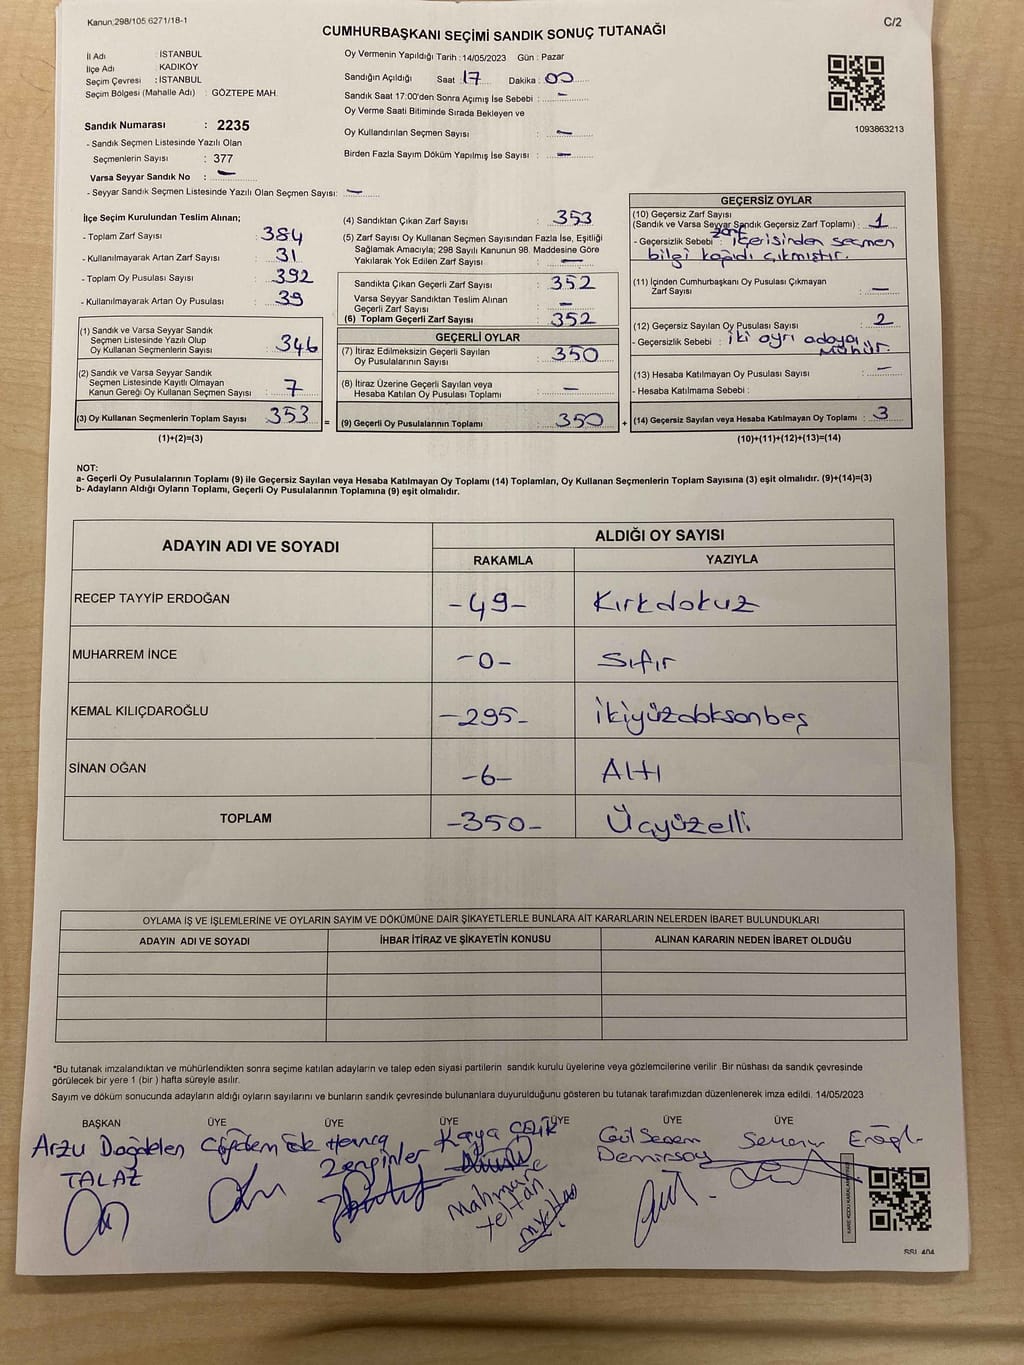 Kanun:298/105 6271/18-1
C/2
CUMHURBAŞKANI SEÇİMİ SANDIK SONUÇ TUTANAĞI
İl Adı : İSTANBUL
İlçe Adı : KADIKÖY
Seçim Çevresi : İSTANBUL
Seçim Bölgesi (Mahalle Adı) : GÖZTEPE MAH.
Sandık Numarası : 2235
- Sandık Seçmen Listesinde Yazılı Olan
Seçmenlerin Sayısı : 377
Varsa Seyyar Sandık No : —
- Seyyar Sandık Seçmen Listesinde Yazılı Olan Seçmen Sayısı: —
Oy Vermenin Yapıldığı Tarih : 14/05/2023 Gün : Pazar
Sandığın Açıldığı Saat : 17 Dakika : 00
Sandık Saat 17:00'den Sonra Açımış İse Sebebi : —
Oy Verme Saati Bitiminde Sırada Bekleyen ve
Oy Kullandırılan Seçmen Sayısı : —
Birden Fazla Sayım Döküm Yapılmış İse Sayısı : —
1093863213
İlçe Seçim Kurulundan Teslim Alınan;
- Toplam Zarf Sayısı : 384
- Kullanılmayarak Artan Zarf Sayısı : 31
- Toplam Oy Pusulası Sayısı : 392
- Kullanılmayarak Artan Oy Pusulası : 39
(1) Sandık ve Varsa Seyyar Sandık
Seçmen Listesinde Yazılı Olup
Oy Kullanan Seçmenlerin Sayısı : 346
(2) Sandık ve Varsa Seyyar Sandık
Seçmen Listesinde Kayıtlı Olmayan
Kanun Gereği Oy Kullanan Seçmen Sayısı : 7
(3) Oy Kullanan Seçmenlerin Toplam Sayısı : 353
(1)+(2)=(3)
=
(4) Sandıktan Çıkan Zarf Sayısı : 353
(5) Zarf Sayısı Oy Kullanan Seçmen Sayısından Fazla İse, Eşitliği
Sağlamak Amacıyla; 298 Sayılı Kanunun 98. Maddesine Göre
Yakılarak Yok Edilen Zarf Sayısı : —
Sandıkta Çıkan Geçerli Zarf Sayısı : 352
Varsa Seyyar Sandıktan Teslim Alınan
Geçerli Zarf Sayısı : —
(6) Toplam Geçerli Zarf Sayısı : 352
GEÇERLİ OYLAR
(7) İtiraz Edilmeksizin Geçerli Sayılan
Oy Pusulalarının Sayısı : 350
(8) İtiraz Üzerine Geçerli Sayılan veya
Hesaba Katılan Oy Pusulası Toplamı : —
(9) Geçerli Oy Pusulalarının Toplamı : 350
+
GEÇERSİZ OYLAR
(10) Geçersiz Zarf Sayısı
(Sandık ve Varsa Seyyar Sandık Geçersiz Zarf Toplamı) : 1
- Geçersizlik Sebebi : zarf içerisinden seçmen
bilgi kağıdı çıkmıştır.
(11) İçinden Cumhurbaşkanı Oy Pusulası Çıkmayan
Zarf Sayısı : —
(12) Geçersiz Sayılan Oy Pusulası Sayısı : 2
- Geçersizlik Sebebi : iki ayrı adaya
mühür.
(13) Hesaba Katılmayan Oy Pusulası Sayısı : —
- Hesaba Katılmama Sebebi :
(14) Geçersiz Sayılan veya Hesaba Katılmayan Oy Toplamı : 3
(10)+(11)+(12)+(13)=(14)
NOT:
a- Geçerli Oy Pusulalarının Toplamı (9) ile Geçersiz Sayılan veya Hesaba Katılmayan Oy Toplamı (14) Toplamları, Oy Kullanan Seçmenlerin Toplam Sayısına (3) eşit olmalıdır. (9)+(14)=(3)
b- Adayların Aldığı Oyların Toplamı, Geçerli Oy Pusulalarının Toplamına (9) eşit olmalıdır.
ADAYIN ADI VE SOYADI
ALDIĞI OY SAYISI
RAKAMLA YAZIYLA
RECEP TAYYİP ERDOĞAN -49- Kırkdokuz
MUHARREM İNCE -0- Sıfır
KEMAL KILIÇDAROĞLU -295- İkiyüzdoksanbeş
SİNAN OĞAN -6- Altı
TOPLAM -350- Üçyüzelli
OYLAMA İŞ VE İŞLEMLERİNE VE OYLARIN SAYIM VE DÖKÜMÜNE DAİR ŞİKAYETLERLE BUNLARA AİT KARARLARIN NELERDEN İBARET BULUNDUKLARI
ADAYIN ADI VE SOYADI İHBAR İTİRAZ VE ŞİKAYETİN KONUSU ALINAN KARARIN NEDEN İBARET OLDUĞU
*Bu tutanak imzalandıktan ve mühürlendikten sonra seçime katılan adayların ve talep eden siyasi partilerin sandık kurulu üyelerine veya gözlemcilerine verilir .Bir nüshası da sandık çevresinde
görülecek bir yere 1 (bir ) hafta süreyle asılır.
Sayım ve döküm sonucunda adayların aldığı oyların sayılarını ve bunların sandık çevresinde bulunanlara duyurulduğunu gösteren bu tutanak tarafımızdan düzenlenerek imza edildi. 14/05/2023
BAŞKAN ÜYE ÜYE ÜYE ÜYE ÜYE ÜYE
Arzu Doğdelen
TALAZ
Çiğdem
Zenginler
Kaya ÇELİK
Gül Senem
Demirsoy
SSI 404